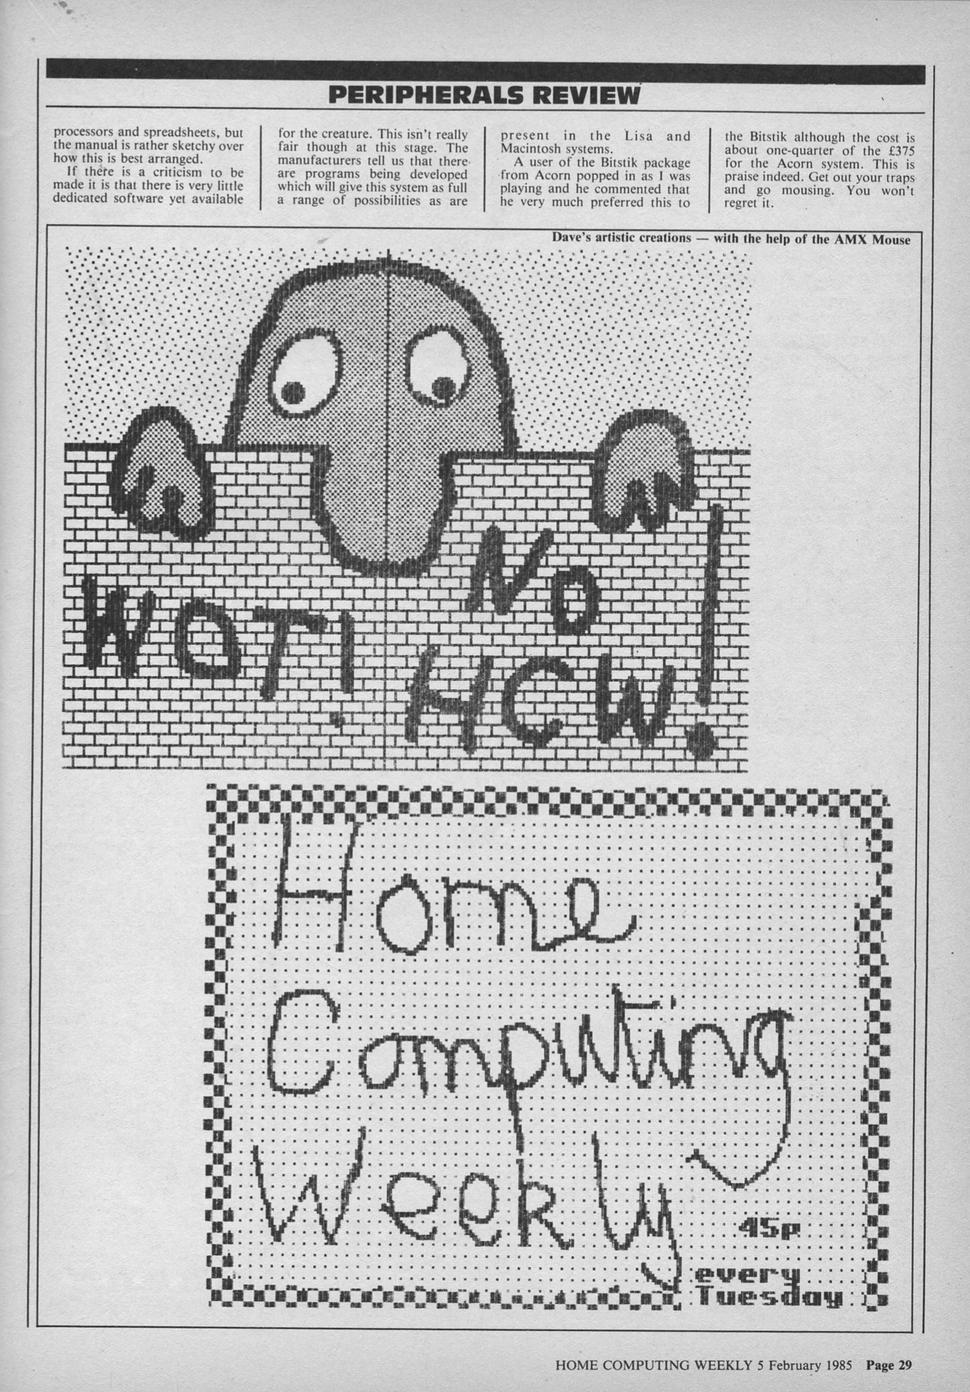 PERIPHERALS REVIEW
processors and spreadsheets, but
the manual is rather sketchy over
how this is best arranged.
If there is a criticism to be
made it is that there is very little
dedicated software yet available
for the creature. This isn't really
fair though at this stage. The
manufacturers tell us that there
are programs being developed
which will give this system as full
a range of possibilities as are
present in the Lisa and
Macintosh systems.
A user of the Bitstik package
from Acorn popped in as I was
playing and he commented that
he very much preferred this to
the Bitstik although the cost is
about one-quarter of the £375
for the Acorn system. This is
praise indeed. Get out your traps
and go mousing. You won't
regret it.
Dave's artistic creations — with the help of the AMX Mouse
WOT!
NO
HCW!
Home
Computing
Weekly
45p
every
Tuesday
HOME COMPUTING WEEKLY 5 February 1985 Page 29